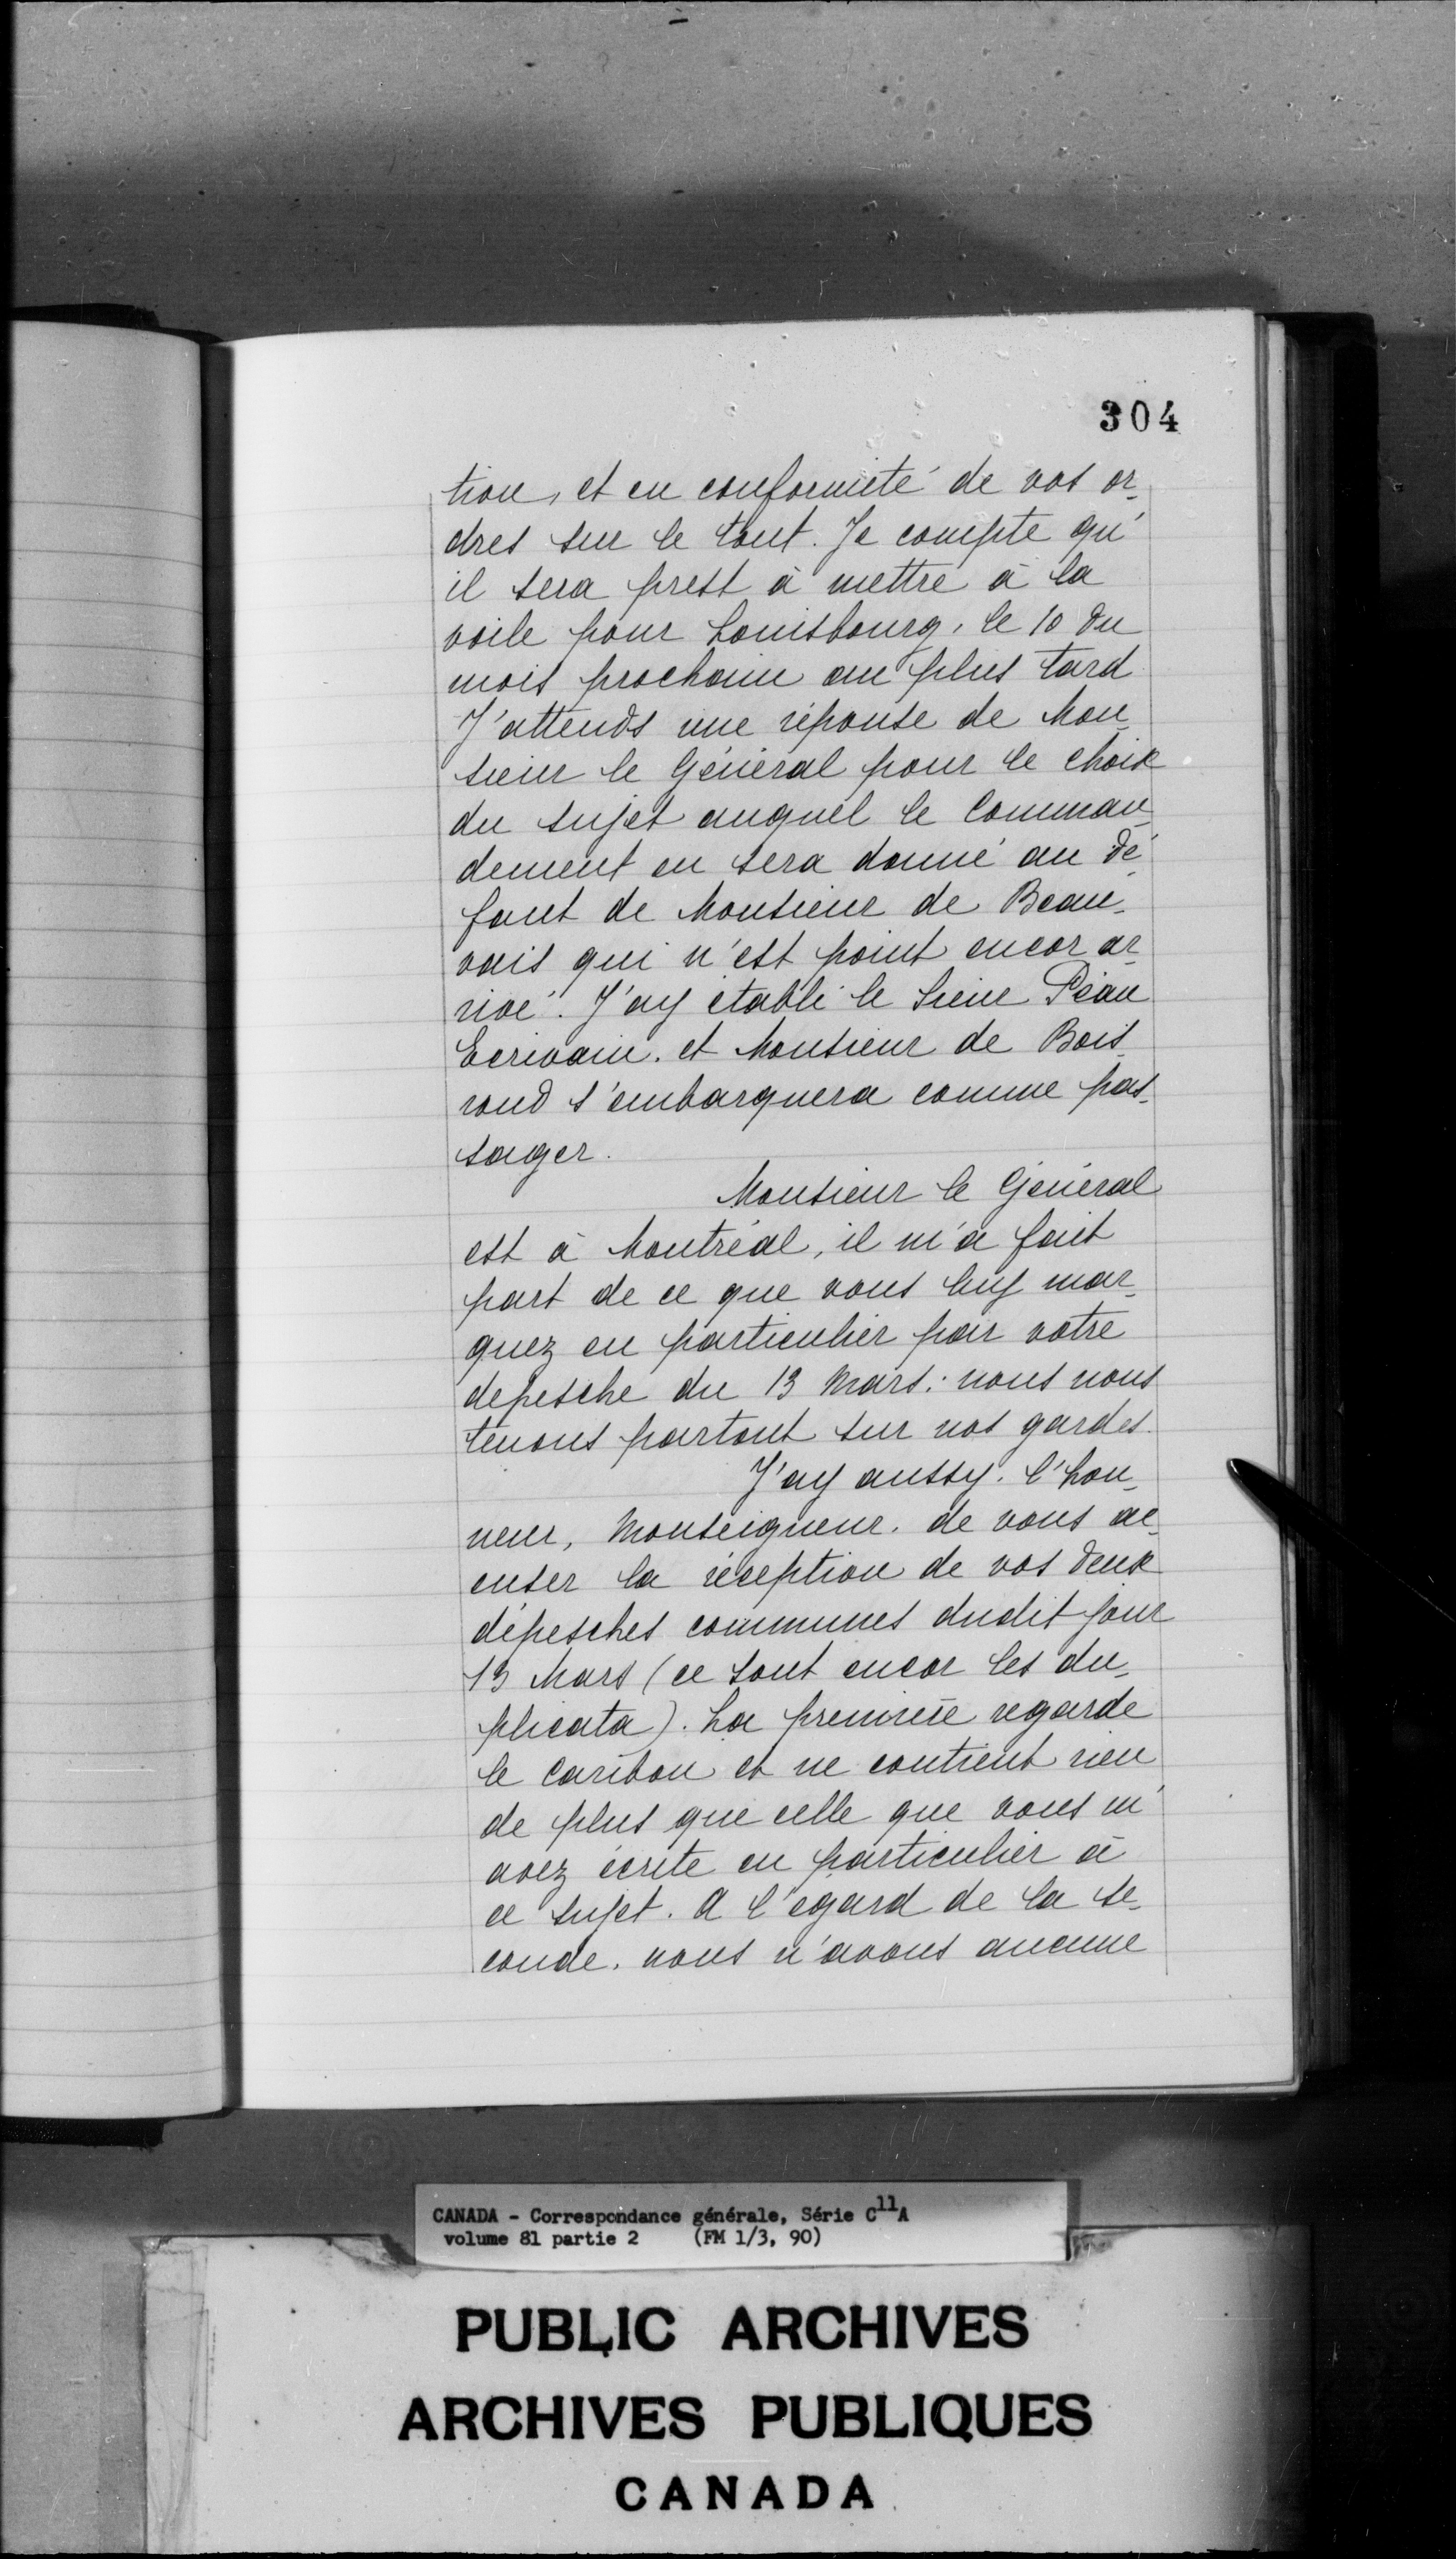 304
tion, et en conformité de vos or-
dres sur le tout. Je compte qu'
il sera prest à mettre à la
voile pour Louisbourg, le 10 du
mois prochain au plus tard
J'attends une réponse de Mon-
sieur le Général pour le choix
du sujet auquel le Comman-
dement en sera donné au dé-
faut de Monsieur de Beau-
vais qui n'est point encor ar-
rivé. J'ay établi le Sieur Péan
Ecrivain, et Monsieur de Bois-
rond s'embarquera comme pas-
sager.
Monsieur le Général
est à Montréal, il m'a fait
part de ce que vous luy mar-
quez en particulier par votre
depesche du 13 Mars: nous nous
tenons partout sur nos gardes.
J'ay aussy l'hon-
neur, Monseigneur, de vous ac-
cuser la réception de vos deux
dépesches communes dudit jour
13 Mars (ce sont encor les du-
plicata). La première regarde
le Caribou et ne contient rien
de plus que celle que vous m'
avez écrite en particulier à
ce sujet. A l'égard de la se-
conde, nous n'avons aucune
CANADA - Correspondance générale, Série C11A
volume 81 partie 2 (FM 1/3, 90)
PUBLIC ARCHIVES
ARCHIVES PUBLIQUES
CANADA